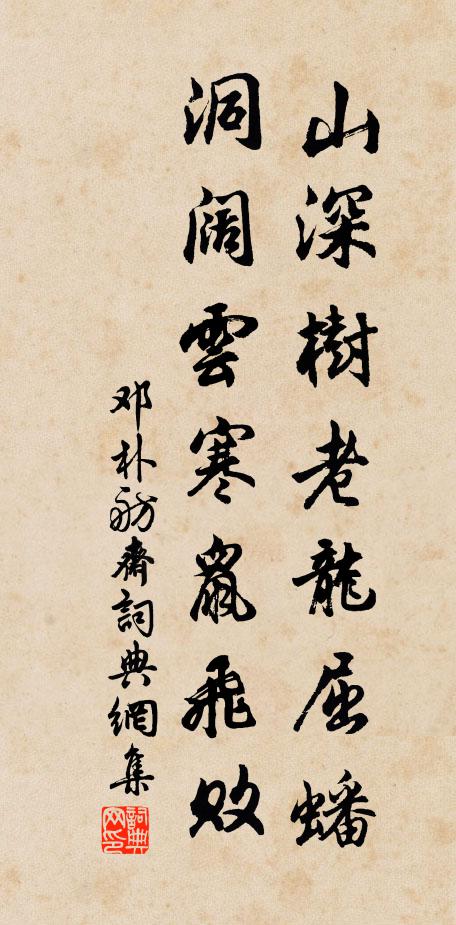 山深樹老龍屈蟠
洞阔雲寒鼠飛敗
邓朴舫齋詞典網集
詞典网印